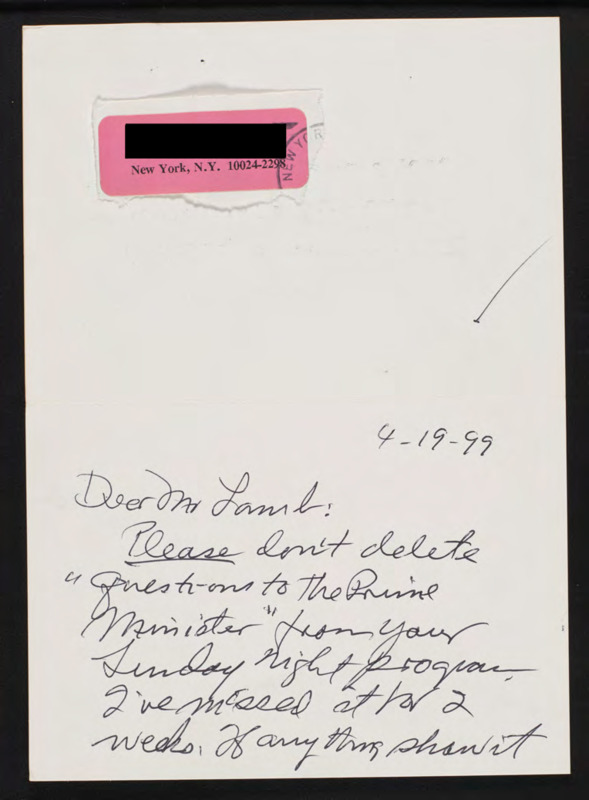 New York, N.Y. 10024-2298
NEW YOR
4-19-99
Dear Mr Lamb:
Please don't delete
"Questions to the Prime
Minister" from your
Sunday night program
I've missed it for 2
weeks. If anything show it